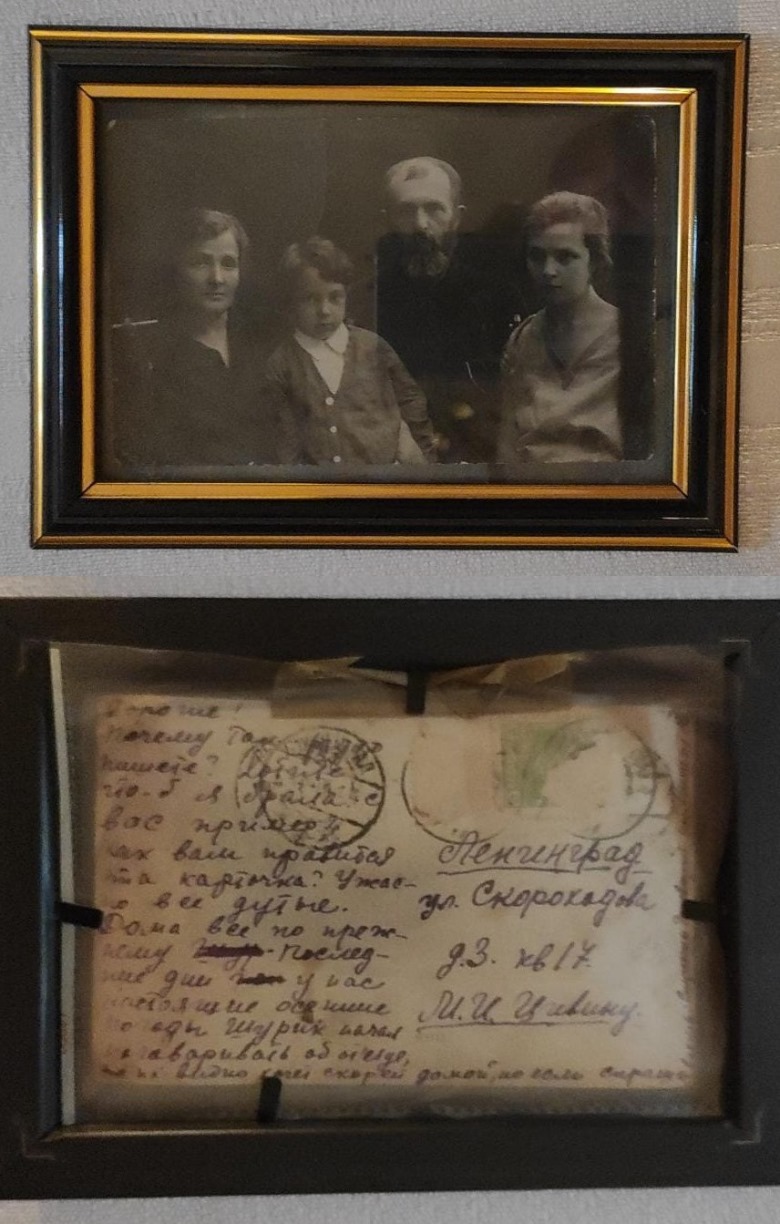 Дорогие!
Почему так
пишете? Хотите
что-б я брала с
вас пример?
как вам нравится
эта карточка? Ужас-
но все дутые.
Дома все по преж-
нему. Послед-
ние дни у нас
настоящие осенние
погоды Шурик начал
поговаривать об отъезде,
видно хочет скорей домой, но если
Ленинград
ул. Скороходова
д.3. кв 17.
М.И.